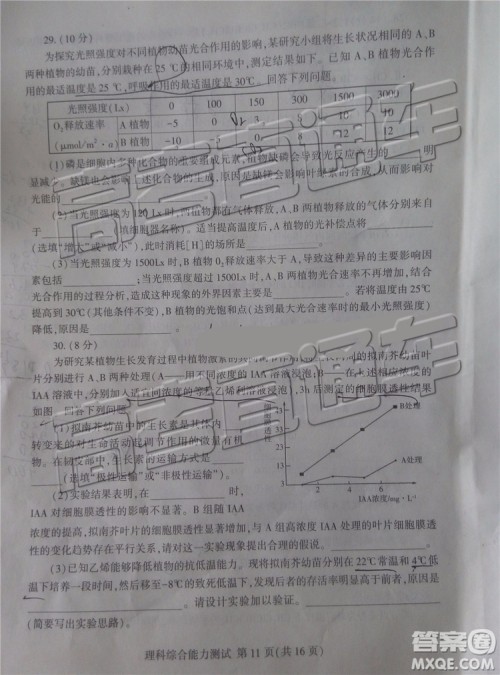 29.(10 分)
为探究光照强度对不同植物幼苗光合作用的影响,某研究小组将生长状况相同的 A、B
两种植物的幼苗,分别栽种在 25 ℃的相同环境中,测定结果如下表。已知 A、B 植物光合作
用的最适温度是 25 ℃,呼吸作用的最适温度是 30℃。回答下列问题。
光照强度(Lx) 0 100 150 300 1500 3000
O₂释放速率 A 植物 -5 0 3 8 12
(μmol/m²·s) B 植物 -10 0 8 12
(1)磷是细胞内多种化合物的重要组成元素,植物缺磷会导致光反应产生的 明
显减少。缺镁也会影响上述化合物的生成,原因是缺镁会影响叶绿素的合成,从而影响

(2)当光照强度为 Lx 时,两植物都有气体释放,A、B两植物的气体分别来自
于 (填细胞器名称)。适当提高温度后,A 植物的光补偿点将
(选填“增大”或“减小”),此时消耗[H]的场所是 。
(3)当光照强度为1500Lx时,B植物氧气释放速率大于 A,导致这种差异的主要影响因
素包括 ;当光照强度超过 1500Lx 时,A 植物光合速率不再增加,结合
光合作用的过程分析,造成这种现象的外界因素是 。若将温度由 25℃
提高到 30℃(其他条件不变),B 植物的光饱和点(达到最大光合速率时的最小光照强度)
降低,原因是 。
30.(8 分)
为研究某植物生长发育过程中植物激素的 的拟南芥幼苗叶
片分别进行 A、B 两种处理(A 用不同浓度的 IAA 溶液浸泡,B 在上述不同浓度的
IAA 溶液中,分别加入适宜浓度的等量乙烯利溶液浸泡),3h 后测定的细胞膜透性结果
如图。回答下列问题。
(1)拟南芥幼苗的生长素是其体内
转变来的对生命活动起调节作用的微量有机
物。在韧皮部中,生长素的运输方式是
(选填“极性运输”或“非极性运输”)。
细胞膜透性
B处理
A处理
2 4 6 IAA浓度/mg·L⁻¹
(2)实验结果表明,在 IAA 对细胞膜透性的影响不显著。B 组随 IAA
浓度的提高,拟南芥叶片的细胞膜透性显著增加。有同学根据单独 IAA 处理的叶片膜透性
的变化趋势存在于乙烯利共同处理时不一致这一实验现象提出合理的假说。

(3)已知乙烯能够降低植物的抗冻性。现将拟南芥幼苗分别在 22℃常温和 4℃低
温下培养一段时间,然后移至-8℃的致死低温下,发现后者的存活率明显高于前者,原因是
。请设计实验加以验证。
(简要写出实验思路)。
理科综合能力测试 第 11 页(共 16 页)
高考直通车
答案圈
MXQE.COM